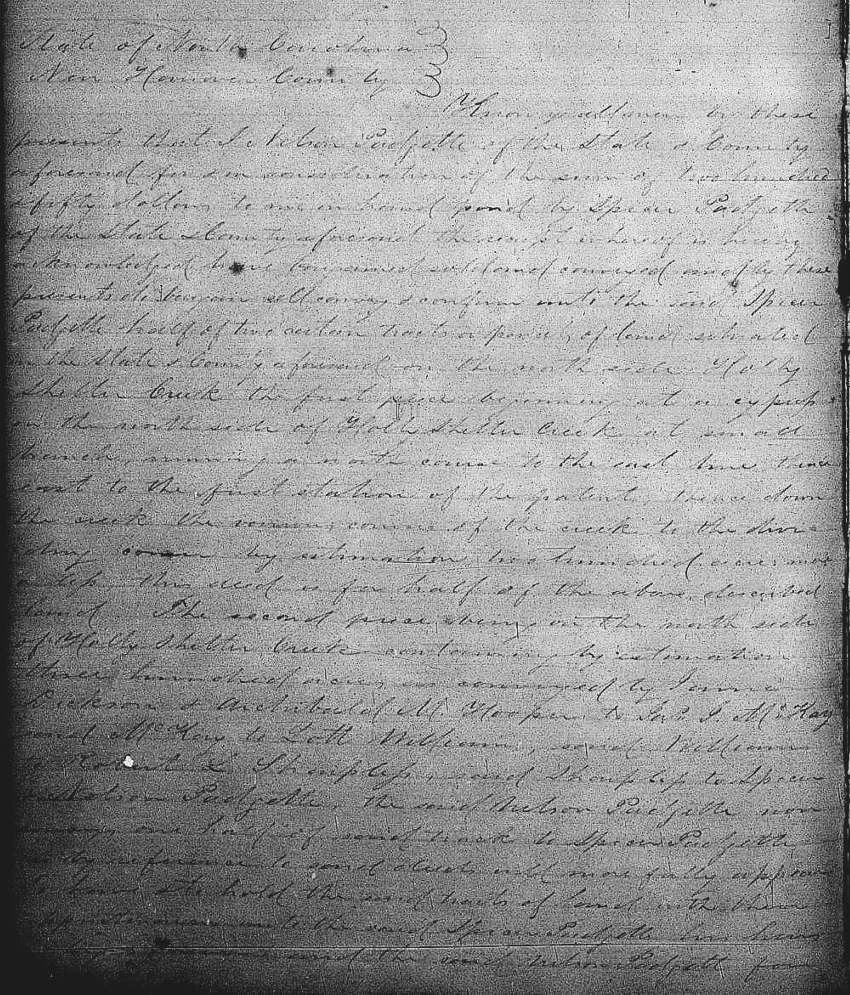 State of North Carolina
New Hanover County
Know all men by these
presents that I Nelson Padgette of the State & County
aforesaid for & in consideration of the sum of two hundred
& fifty dollars to me in hand paid by Spicer Padgette
of the State & County aforesaid the receipt whereof is hereby
acknowledged have bargained sold and conveyed and by these
presents do bargain sell convey & confirm unto the said Spicer
Padgette half of two certain tracts or parcels of land situated
in the State & County aforesaid on the north side Holly
Shelter Creek the first piece beginning at a cypress
on the north side of Holly Shelter Creek at small
branch, running a north course to the east line thence
east to the first station of the patent, thence down
the creek the running course of the creek to the divi-
ding corner by estimation two hundred acres more
or less this deed is for half of the above described
land. The second piece being on the north side
of Holly Shelter Creek containing by estimation
three hundred acres as conveyed by
Dickson & Archibald M. Hooper to Jno. J. McKay
said McKay to Lott Williams, said Williams
to Robert & Shuplip, said Shuplip to Spicer
& Nelson Padgette, the said Nelson Padgette now
conveys one half of said track to Spicer Padgette
as by reference to said deeds will more fully appear
to have & to hold the said tracts of land with the
appurtenances unto the said Spicer Padgette his heirs
and the said Nelson Padgette for